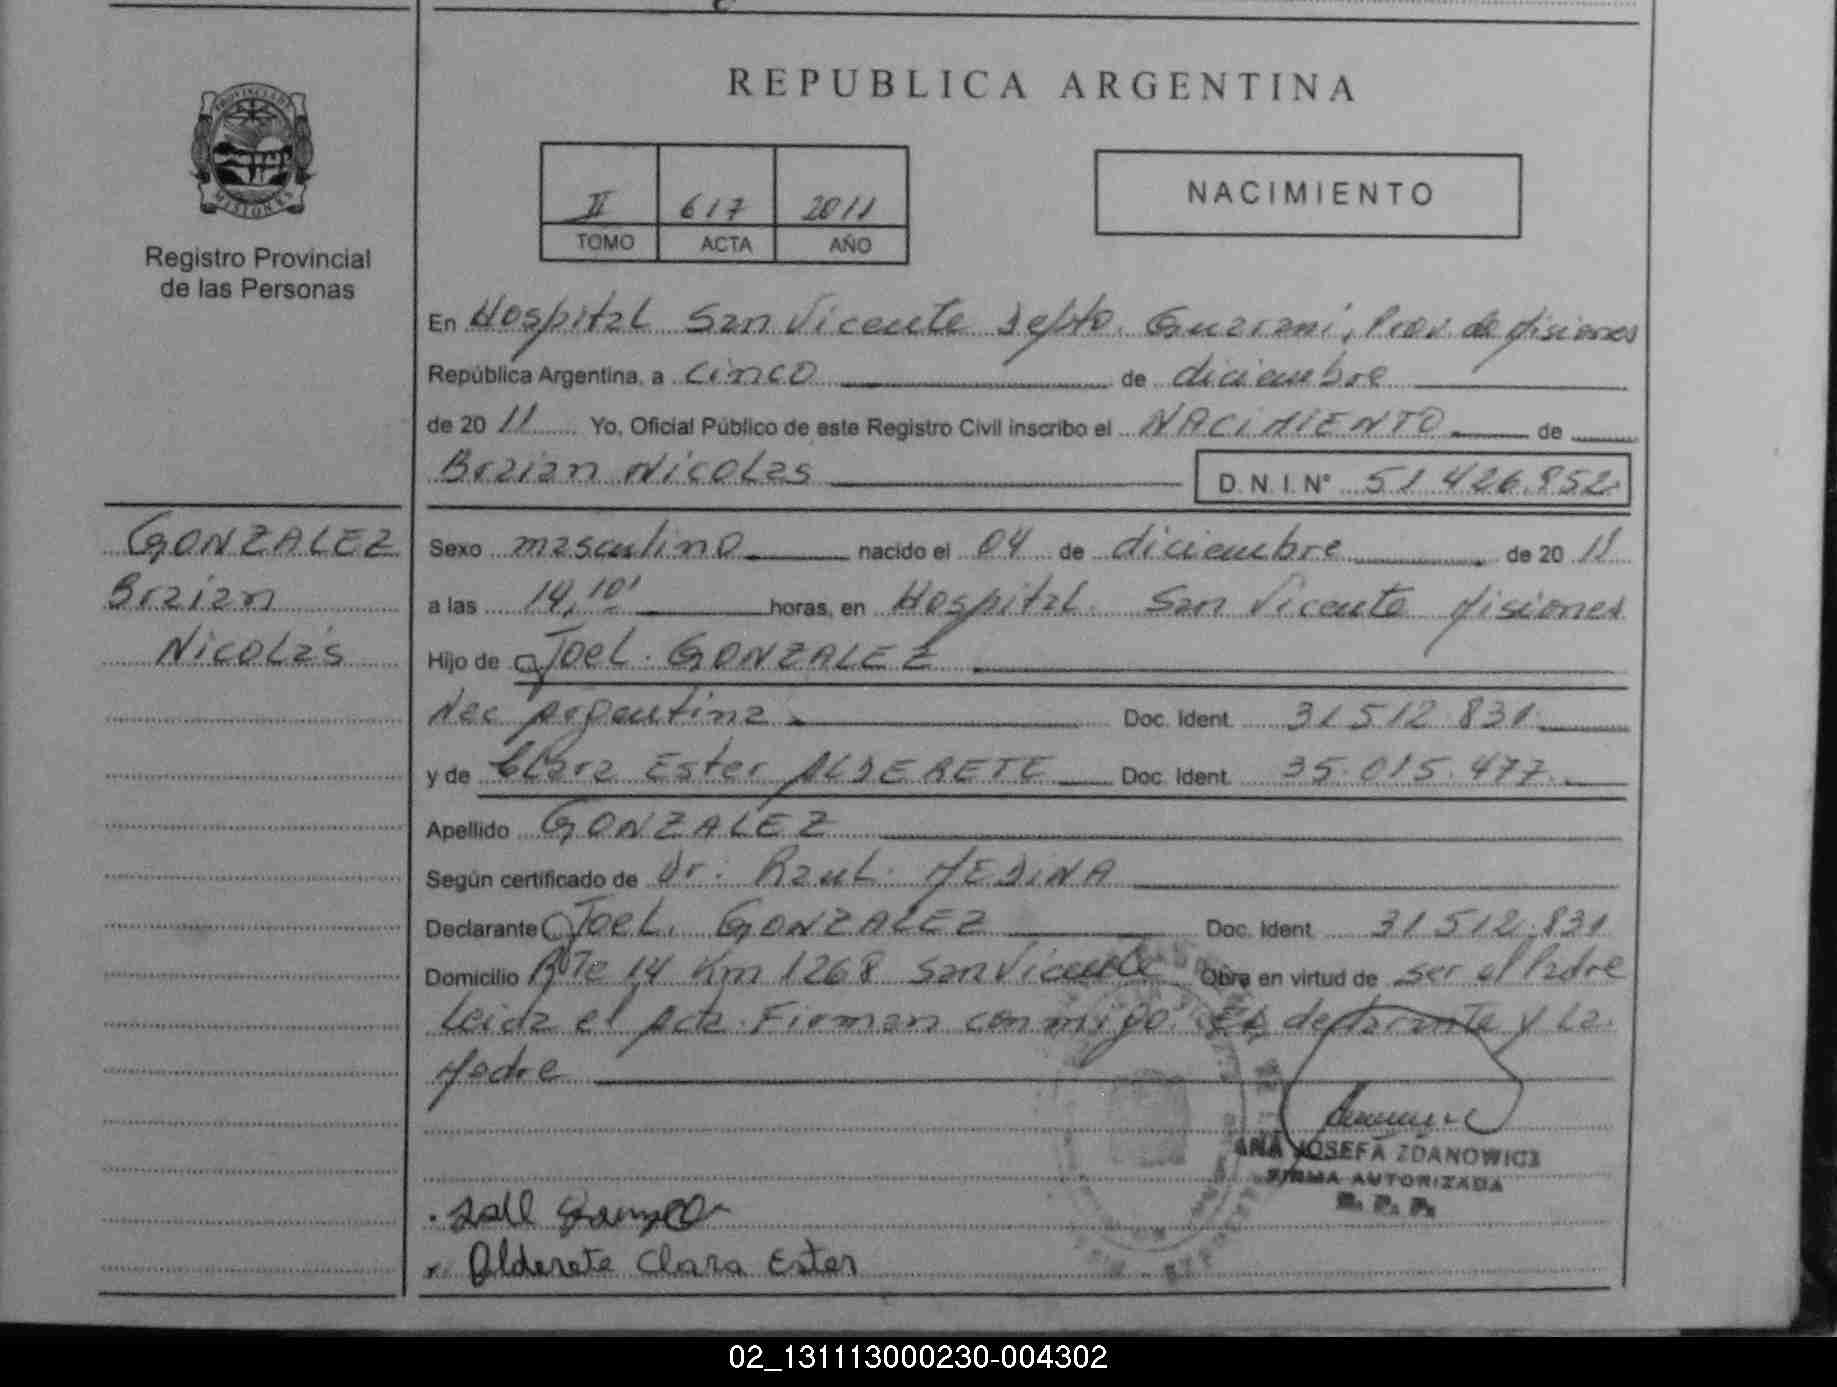 REPUBLICA ARGENTINA
PROVINCIA DE MISIONES
Registro Provincial
de las Personas
II 617 2011
TOMO ACTA AÑO
NACIMIENTO
En Hospital San Vicente Depto. Guarani, Prov. de Misiones
República Argentina, a cinco de diciembre
de 20 11 Yo, Oficial Público de este Registro Civil inscribo el NACIMIENTO de
Braian Nicolas D.N.I. N° 51.426.852
GONZALEZ
Braian
Nicolás
Sexo masculino nacido el 04 de diciembre de 20 11
a las 14,10' horas, en Hospital San Vicente Misiones
Hijo de Joel GONZALEZ
Nac Argentina Doc. Ident. 31.512.831
y de Clara Ester ALDERETE Doc. Ident. 35.015.477
Apellido GONZALEZ
Según certificado de Dr. Raul MEDINA
Declarante Joel GONZALEZ Doc. Ident. 31.512.831
Domicilio Rta 14 Km 1268 San Vicente Obra en virtud de ser el Padre
Leida el acta. Firman conmigo el declarante y la
Madre
ANA JOSEFA ZDANOWICZ
FIRMA AUTORIZADA
R. P. P.
Alderete Clara Ester
02_131113000230-004302